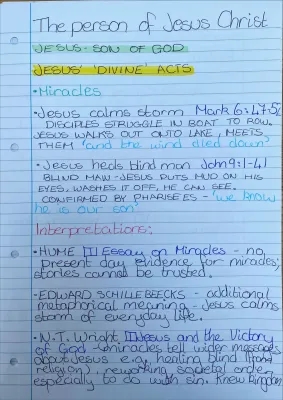 The person of Jesus Christ
JESUS - SON OF GOD
JESUS' 'DIVINE' ACTS
• Miracles
• Jesus calms storm Mark 6:47-5
DISCIPLES STRUGGLE IN BOAT TO ROW.
JESUS WALKS OUT ONTO LAKE, MEETS
THEM 'and the wind died down'
• Jesus heals blind man John 9:1-41
BLIND MAN - JESUS PUTS MUD ON HIS
EYES, WASHES IT OFF, HE CAN SEE.
CONFIRMED BY PHARISEES - 'we know
he is our son'
Interpretations:
• HUME Essay on Miracles - no
present day evidence for miracles;
stories cannot be trusted.
• EDWARD SCHILLEBEECKS - additional
metaphorical meaning - Jesus calms
storm of everyday life.
• N.T. Wright Jesus and the Victory
of God - miracles tell wider messages
about Jesus e.g. healing blind
religion), reworking societal order,
especially to do with sin. Knew kingdom